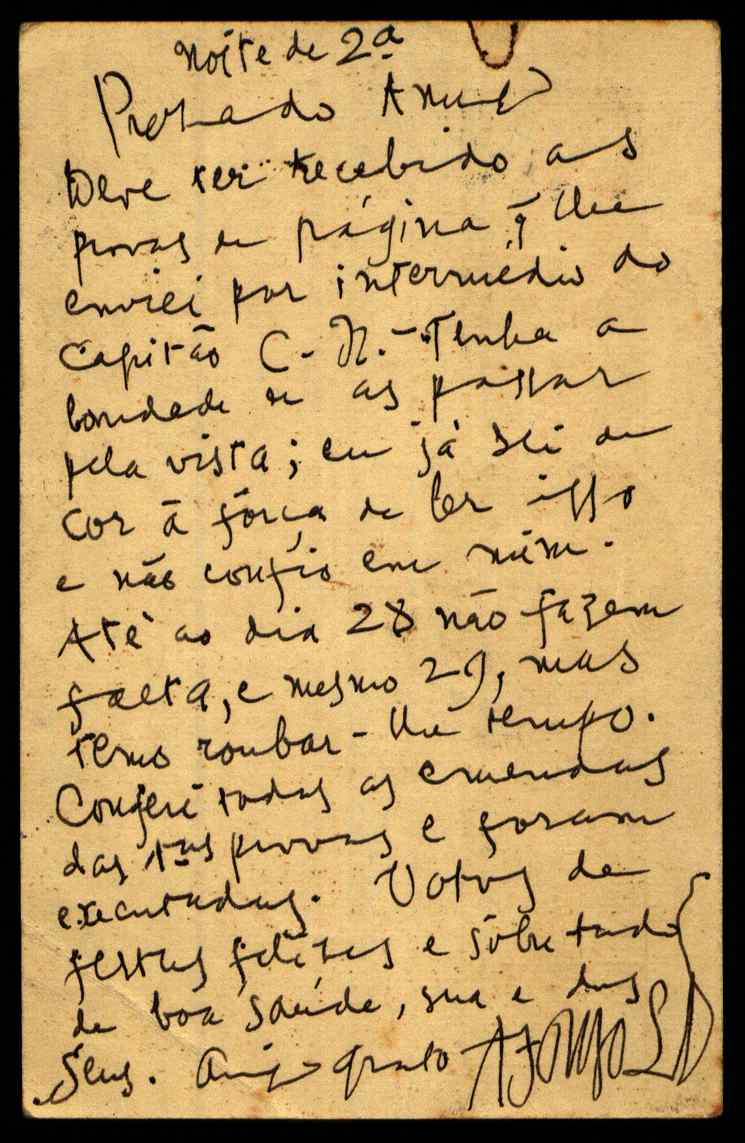 Noite de 2ª
Prezado Amigo
Deve ter recebido as
provas de página q̄ lhe
enviei por intermédio do
Capitão C- N.- Tenha a
bondade de as passar
pela vista; eu já sei de
cor à fôrça de ler isso
e não confio em mim.
Até ao dia 28 não fazem
falta, e mesmo 29, mas
temo roubar-lhe tempo.
Conferi todas as emendas
das 1ªs provas e foram
executadas. Votos de
festas felizes e sôbre tudo
de boa saúde, sua e dos
Seus. Amigo grato